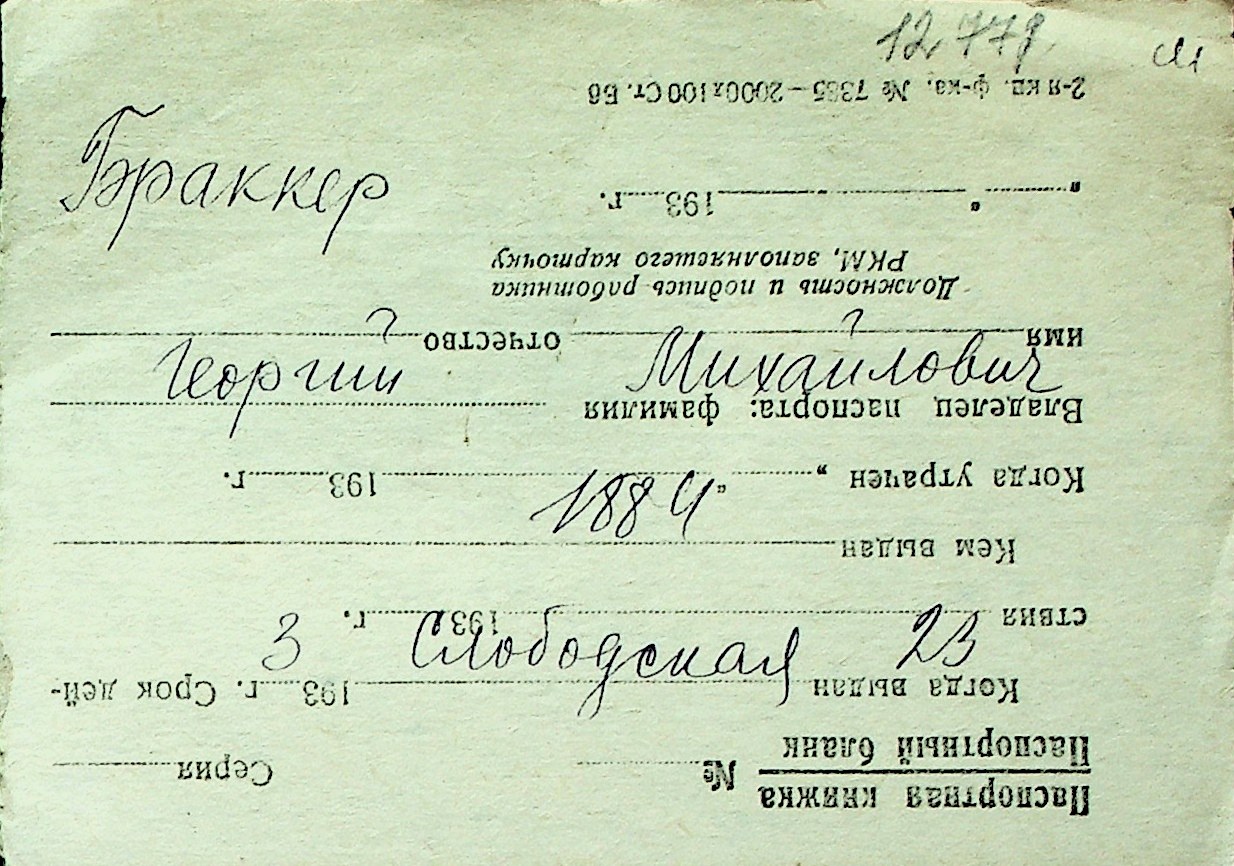 12.779
Браккер
Георгий Михайлович
1884
3 Слободская 23
Паспортная книжка
Паспортный бланк № Серия
Когда выдан 193 г. Срок дей-
ствия 193 г.
Кем выдан
Когда утрачен „ “ 193 г.
Владелец паспорта: фамилия
имя отчество
Должность и подпись работника
РКМ, заполнявшего карточку
„ “ 193 г.
2-я кп. ф-ка. № 7385—2000х100 Ст. Бб